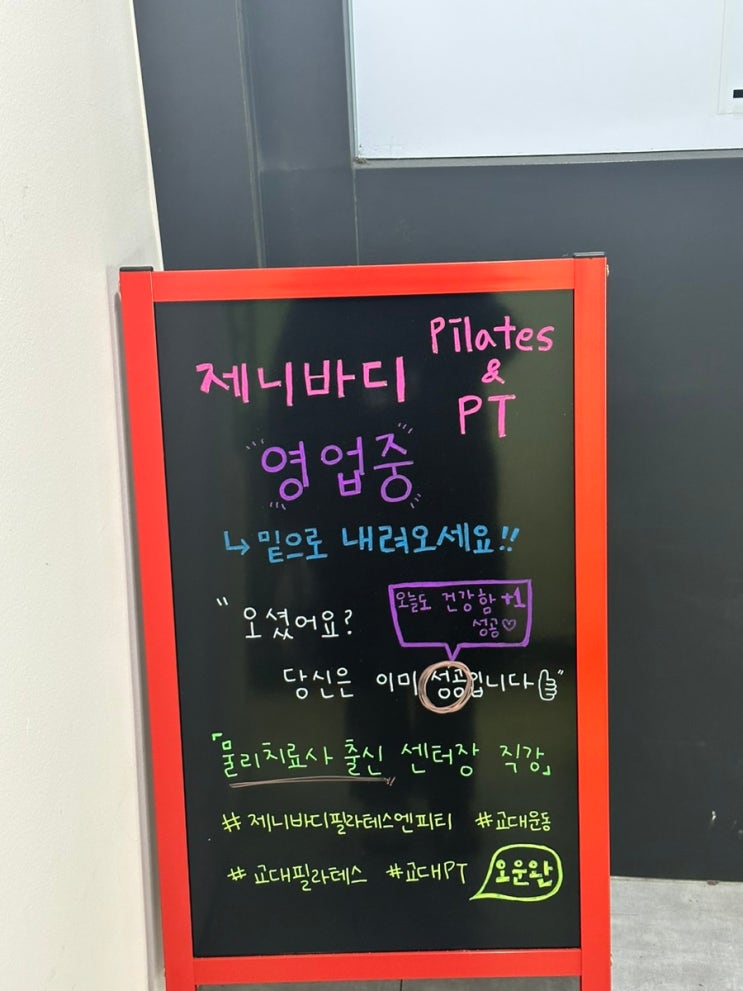 제니바디 Pilates
&
PT
영업중
↳ 밑으로 내려오세요!!
"오셨어요?
오늘도 건강함 +1
성공♡
당신은 이미 성공입니다👍"
「물리치료사 출신 센터장 직강」
#제니바디필라테스엔피티 #교대운동
#교대필라테스 #교대PT 오운완